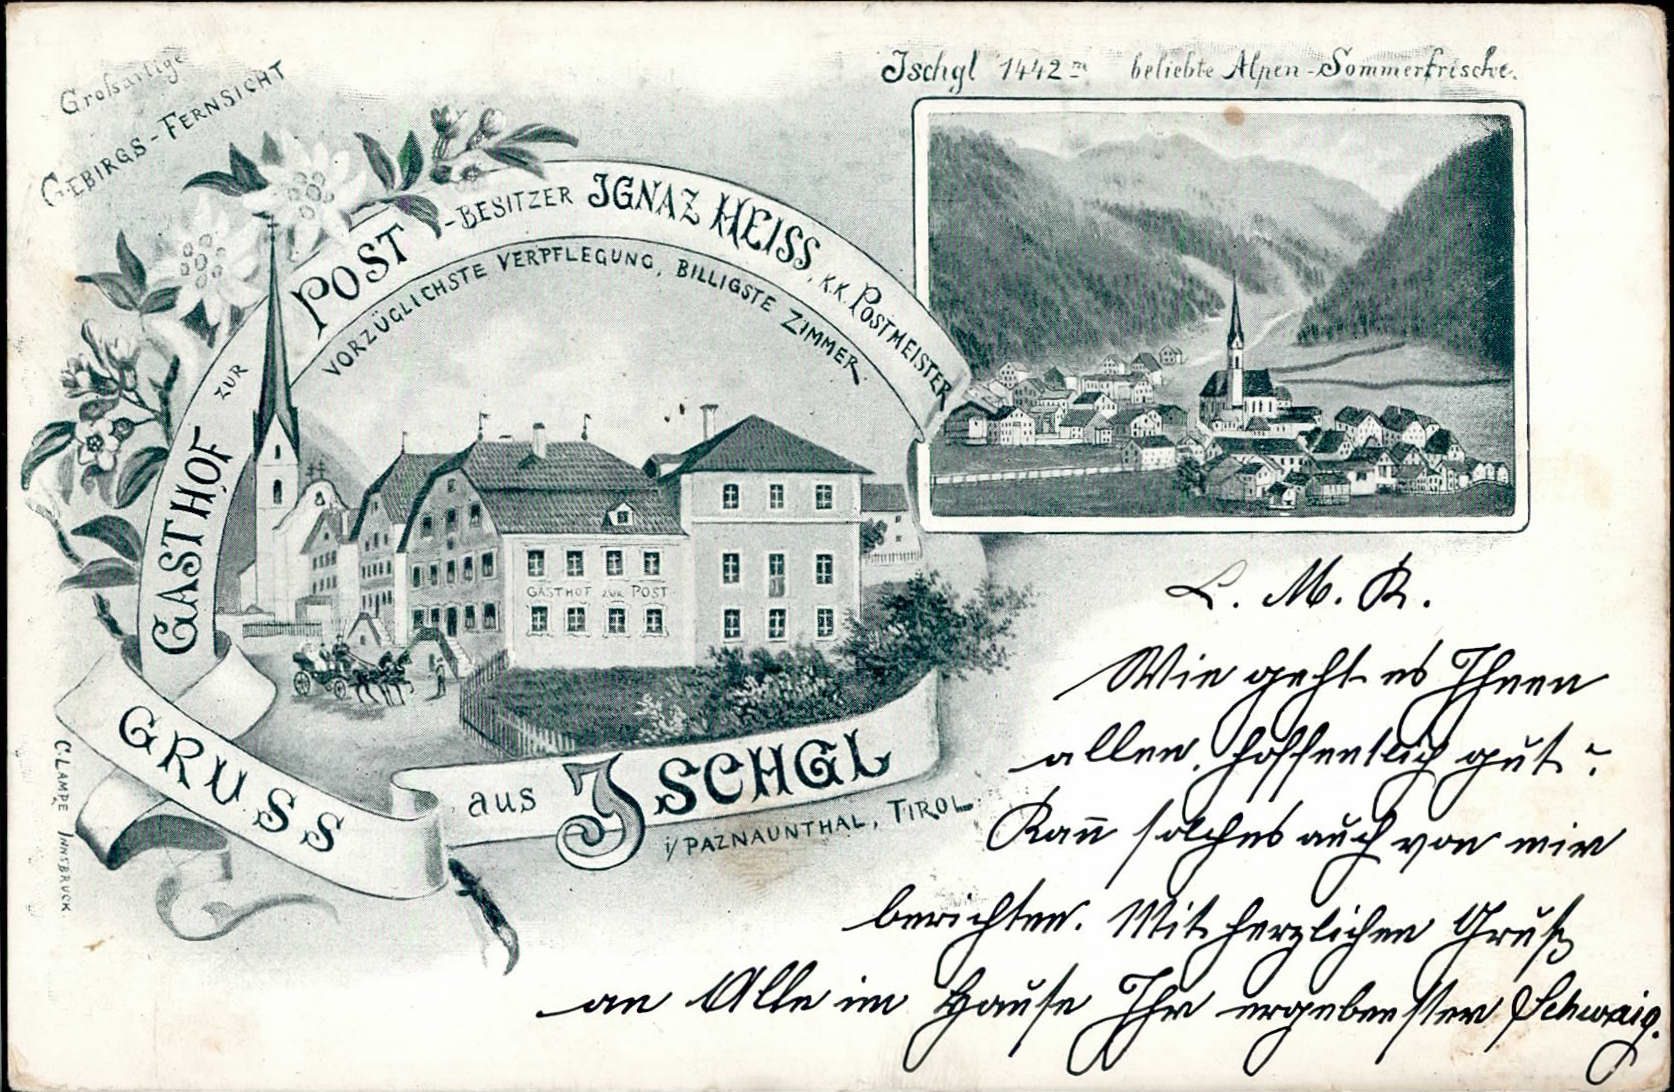 Großartige
GEBIRGS-FERNSICHT
Ischgl 1442 m beliebte Alpen-Sommerfrische.
GASTHOF ZUR POST - BESITZER IGNAZ HEISS, K.K. POSTMEISTER
VORZÜGLICHSTE VERPFLEGUNG, BILLIGSTE ZIMMER.
GASTHOF ZUR POST
GRUSS aus ISCHGL
i/PAZNAUNTHAL, TIROL.
C. LAMPE INNSBRUCK
L. M. K.
Wie geht es Ihnen
allen, hoffentlich gut?
Kan̄ solches auch von mir
berichten. Mit herzlichen Gruß
an Alle im Hause Ihr ergebenster Schwaig.